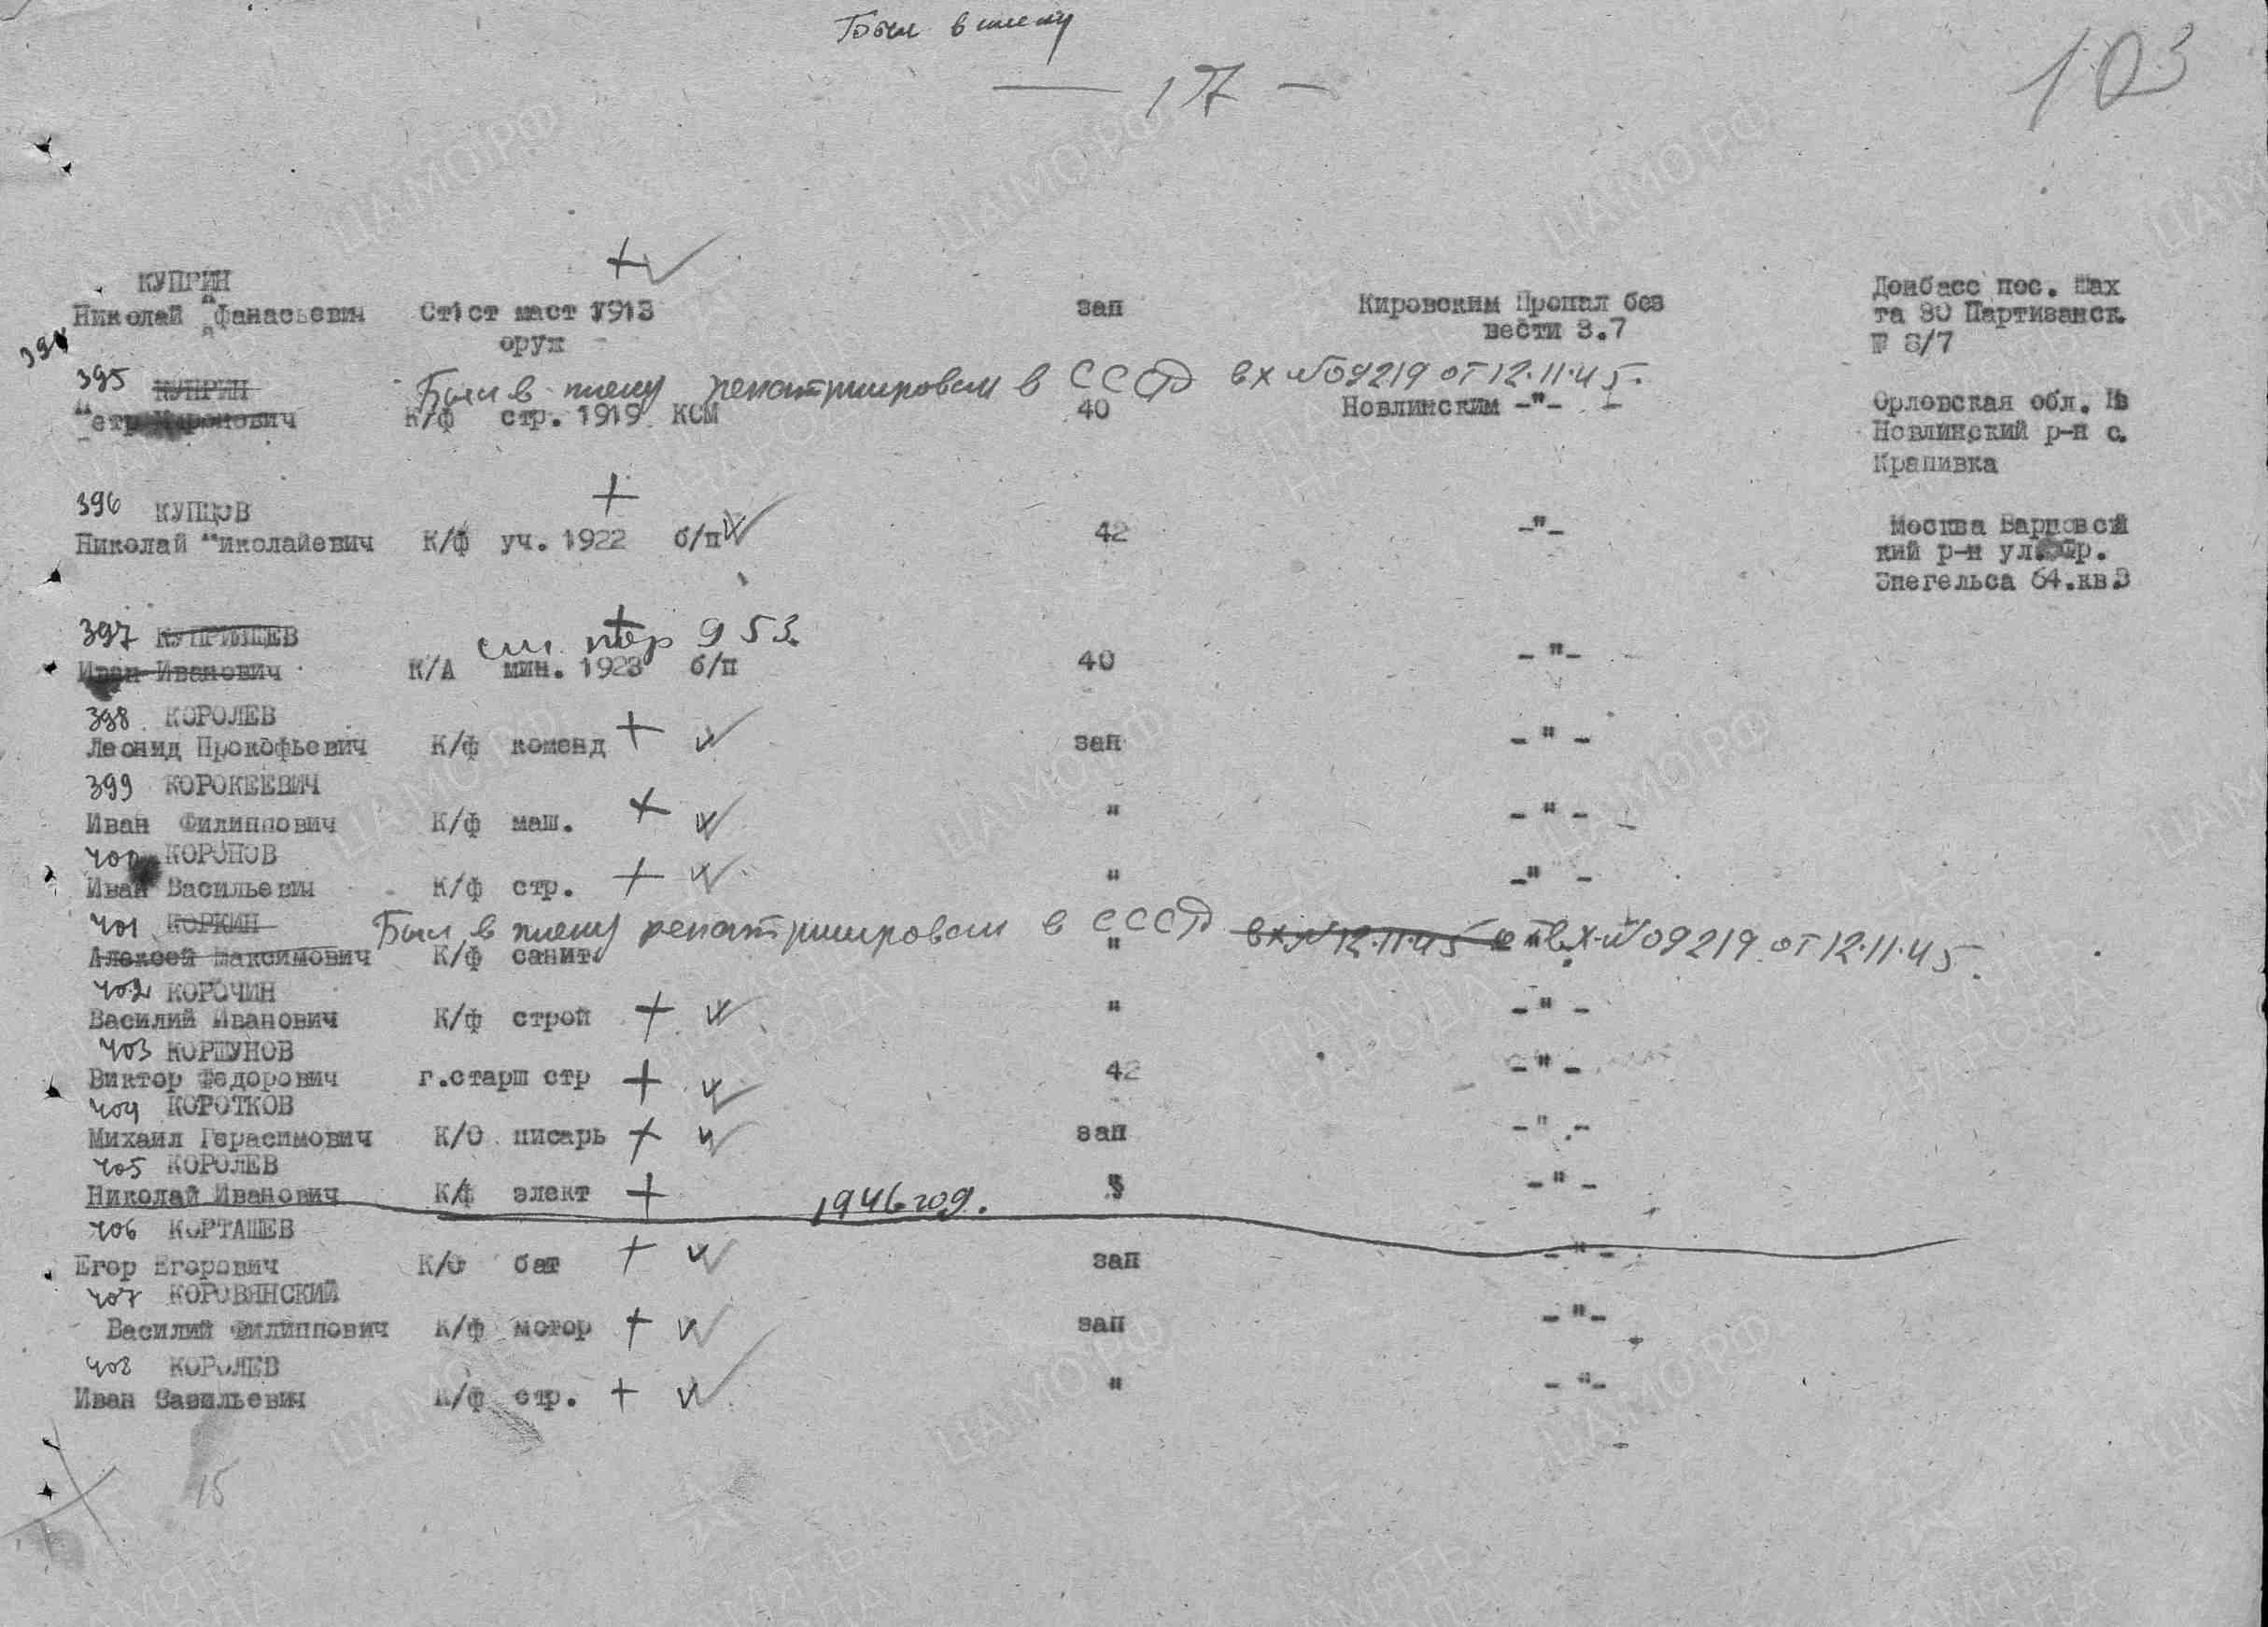 Был в плену
— 17 —
103
КУПРИН
Николай Афанасьевич Ст1ст маст 1913 зап Кировским Пропал без
оруж вести 3.7
Донбасс пос. Шах
та 30 Партизанск.
№ 3/7
394
395 КУПРИН Был в плену репатриирован в СССР вх №09219 от 12.11.45.
Петр Миронович К/ф стр. 1919 КСМ 40 Новлинским -"- -
Орловская обл. Ив
Новлинский р-н с.
Крапивка
396 КУПЦОВ
Николай Николайевич К/ф уч. 1922 б/п 42 -"-
Москва
кий р-н ул. Фр.
Энегельса 64.кв.3
397 КУПРИЯЩЕВ см. пер 953.
Иван Иванович К/А мин. 1923 б/п 40 -"-
398 КОРОЛЕВ
Леонид Прокофьевич К/ф коменд зап -"-
399 КОРОКЕЕВИЧ
Иван Филиппович К/ф маш. " -"-
400 КОРОНОВ
Иван Васильевич К/ф стр. " -"-
401 КОРКИН Был в плену репатриирован в СССР вх№12.11.45 вх№09219 от 12.11.45.
Алексей Максимович К/ф санит. "
402 КОРОЧИН
Василий Иванович К/ф строй " -"-
403 КОРШУНОВ
Виктор Федорович г.старш стр 42 -"-
404 КОРОТКОВ
Михаил Герасимович К/О писарь зап -"-
405 КОРОЛЕВ
Николай Иванович К/ф элект 1946 год. " -"-
406 КОРТАШЕВ
Егор Егорович К/О бат зап -"-
407 КОРОВЯНСКИЙ
Василий Филиппович К/ф мотор зап -"-
408 КОРОЛЕВ
Иван Савильевич К/ф стр. " -"-
15